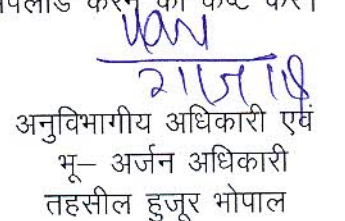 अपलोड करने का कष्ट करें।
21/1/18
अनुविभागीय अधिकारी एवं
भू– अर्जन अधिकारी
तहसील हुजूर भोपाल